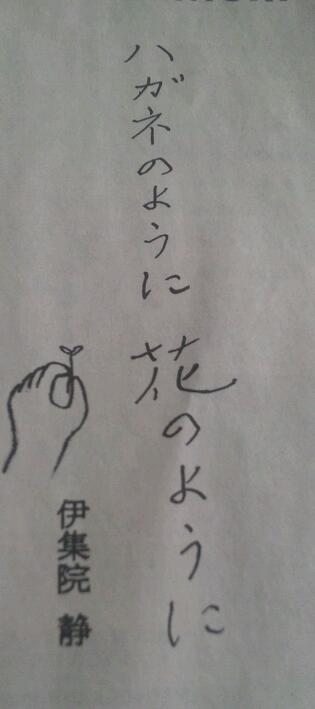 ハガネのように 花のように
伊集院 静